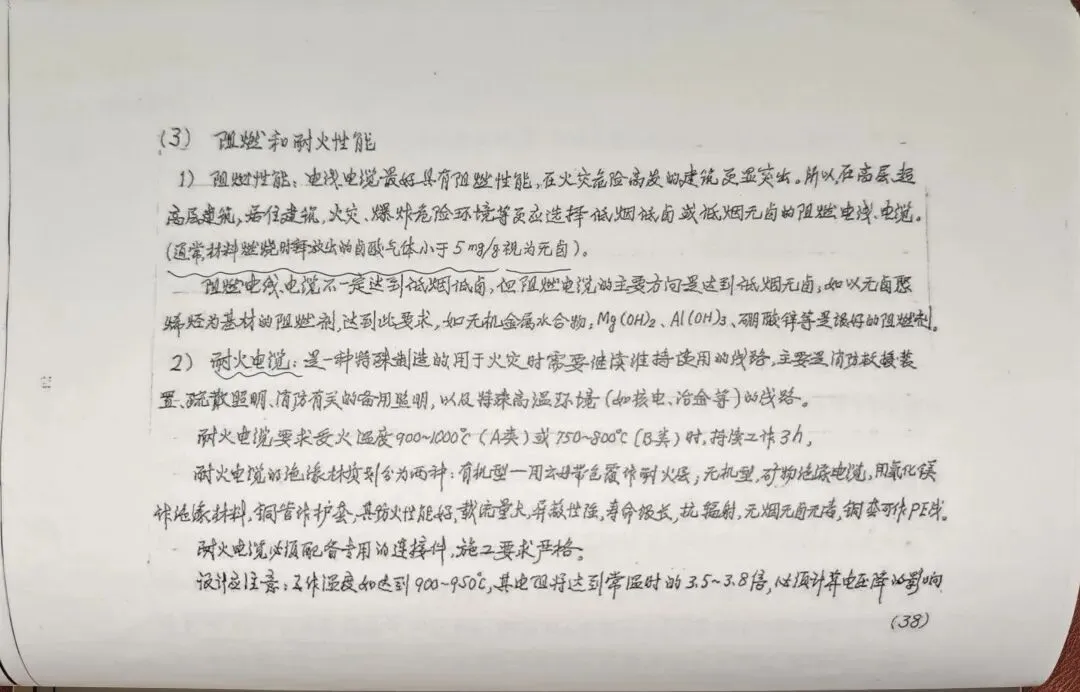 (3) 阻燃和耐火性能
1) 阻燃性能：电线、电缆最好具有阻燃性能，在火灾危险高发的建筑更显突出。所以，在高层、超
高层建筑，居住建筑，火灾、爆炸危险环境等更应选择低烟低卤或低烟无卤的阻燃电线、电缆。
(通常，材料燃烧时释放出的卤酸气体小于5mg/g视为无卤)。
阻燃电线、电缆不一定达到低烟低卤，但阻燃电缆的主要方向是达到低烟无卤，如以无卤聚
烯烃为基材的阻燃剂，达到此要求，如无机金属水合物，Mg(OH)2、Al(OH)3、硼酸锌等是很好的阻燃剂。
2) 耐火电缆：是一种特殊制造的用于火灾时需要继续维持使用的线路，主要是消防救援装
置、疏散照明、消防有关的备用照明，以及特殊高温环境(如核电、冶金等)的线路。
耐火电缆要求受火温度900~1000℃(A类)或750~800℃(B类)时，持续工作3h，
耐火电缆的绝缘材质划分为两种：有机型一用云母带包覆作耐火层；无机型，矿物绝缘电缆，用氧化镁
作绝缘材料，铜管作护套，其防火性能好，载流量大，屏蔽性强，寿命极长，抗辐射，无烟无卤无毒，铜套可作PE线。
耐火电缆必须配备专用的连接件，施工要求严格。
设计应注意：工作温度如达到900~950℃，其电阻将达到常温时的3.5~3.8倍，必须计算电压降的影响
(38)